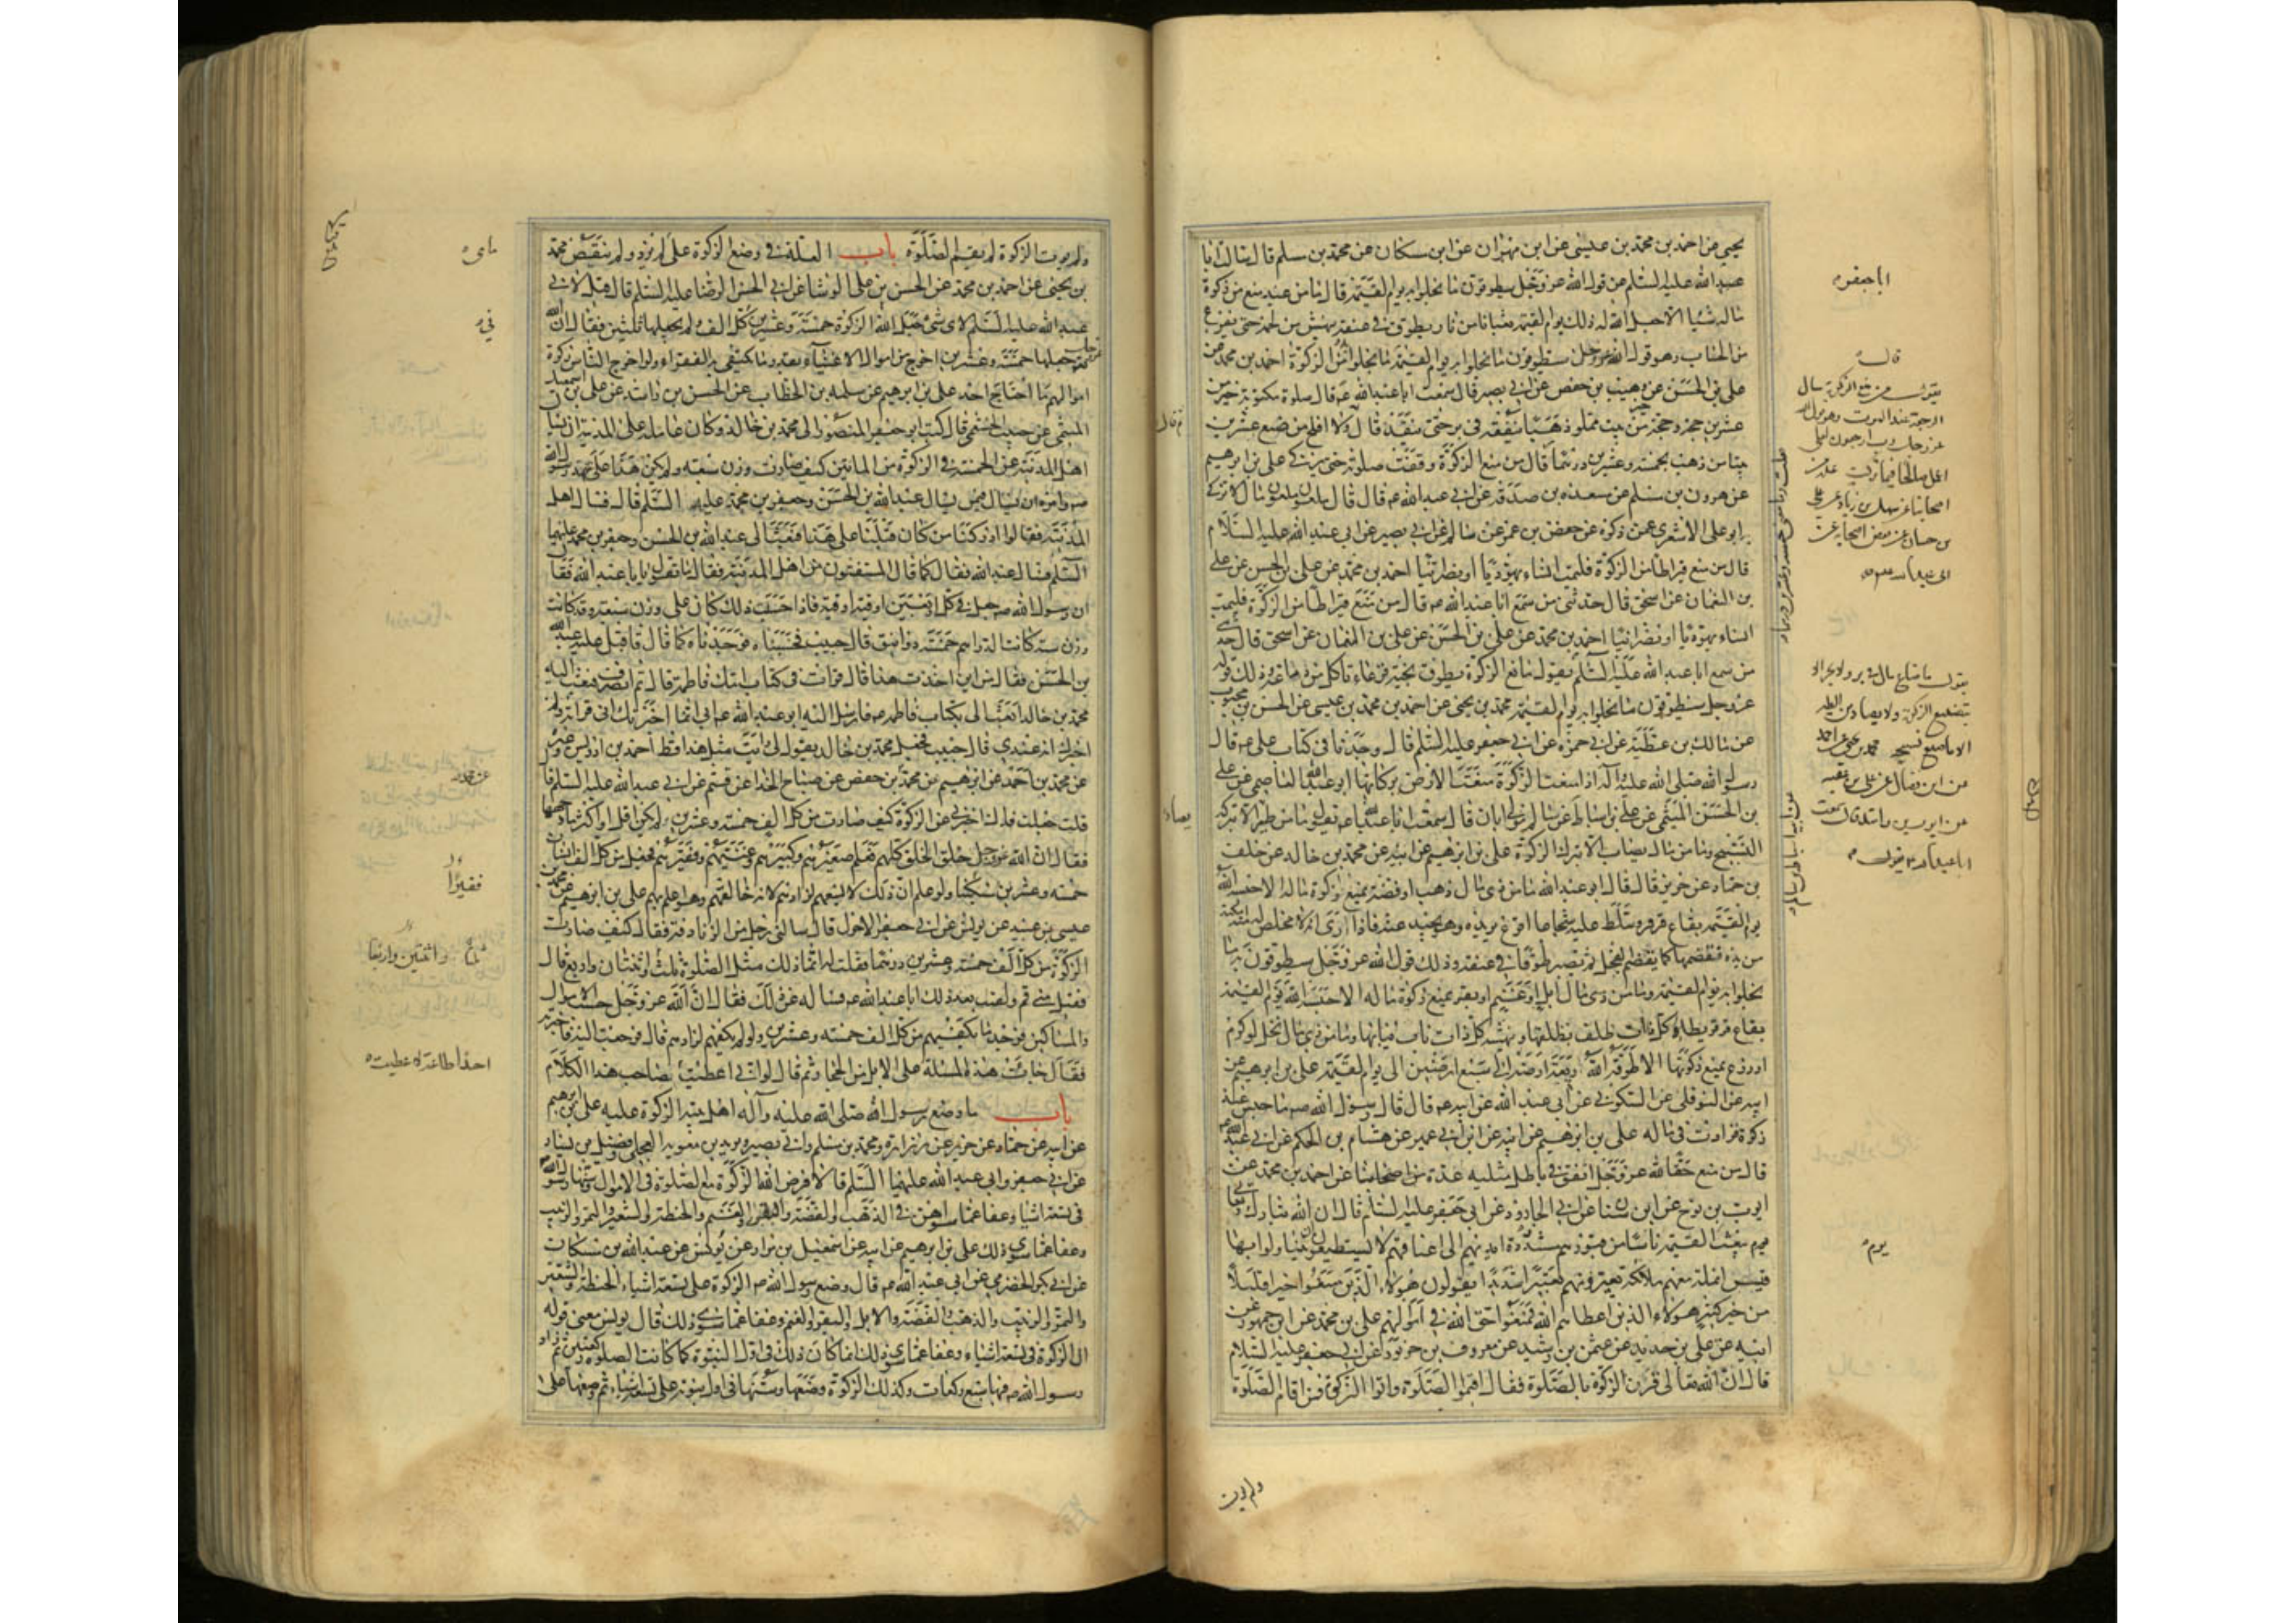 يحيى عن احمد بن محمد بن عيسى عن ابن مهران عن ابن مسكان عن محمد بن مسلم قال سالت ابا
عبد الله عليه السلم عن قول الله عز وجل سيطوقون ما بخلوا به يوم القيمة قال ما من عبد منع من زكوة
ماله شيئا الا جعل الله له ذلك يوم القيمة ثعبانا من نار يطوق في عنقه ينهش من لحمه حتى يفرغ
من الحساب وهو قول الله عز وجل سيطوقون ما بخلوا به يوم القيمة ما بخلوا من الزكوة احمد بن محمد عن
علي بن الحسن عن وهيب بن حفص عن ابي بصير قال سمعت ابا عبد الله عه قال صلوة مكتوبة خير من
عشرين حجة وحجة خير من بيت مملو ذهبا ينفقه في بر حتى ينفد قال ولا افلح من ضيع عشرين
بيتا من ذهب بخمسة وعشرين درهما قال من منع الزكوة وقفت صلوته حتى يزكي علي بن ابرهيم
عن هرون بن مسلم عن مسعدة بن صدقة عن ابي عبد الله عه قال قال ملعون ملعون مال لا يزكى
ابو علي الاشعري عمن ذكره عن حفص بن عمر عن سالم عن ابي بصير عن ابي عبد الله عليه السلام
قال من منع قيراطا من الزكوة فليمت انشاء يهوديا او نصرانيا احمد بن محمد عن علي بن الحسن عن علي
بن النعمان عن اسحق قال حدثني من سمع ابا عبد الله عه قال من منع قيراطا من الزكوة فليمت
انشاء يهوديا او نصرانيا احمد بن محمد عن علي بن الحسن عن علي بن النعمان عن اسحق قال حدثني
من سمع ابا عبد الله عليه السلم يقول مانع الزكوة يطوق بحية قرعاء تاكل من دماغه وذلك قوله
عز وجل سيطوقون ما بخلوا به يوم القيمة محمد بن يحيى عن احمد بن محمد بن عيسى عن الحسن بن محبوب
عن مالك بن عطية عن ابي حمزة عن ابي جعفر عليه السلم قال وجدنا في كتاب علي عه قال
رسول الله صلى الله عليه وآله اذا منعت الزكوة منعت الارض بركاتها ابو عبد الله العاصمي عن علي
بن الحسن الميثمي عن علي بن اسباط عن ابيه سالم مولى ابان قال سمعت ابا عبد الله عه يقول ما من طير الا بتركه
التسبيح وما من مال يصاب الا بترك الزكوة علي بن ابرهيم عن ابيه عن محمد بن خالد عن خلف
بن حماد عن حريز قال قال ابو عبد الله ما من ذي مال ذهب او فضة يمنع زكوة ماله الا حبسه الله
يوم القيمة بقاع قرقر وسلط عليه شجاعا اقرع يريده وهو يحيد عنه فاذا راى انه لا مخلص له منه امكنه
من يده فقضمها كما يقضم الفجل ثم يصير طوقا في عنقه وذلك قول الله عز وجل سيطوقون ما
بخلوا به يوم القيمة وما من ذي مال ابل او غنم او بقر يمنع زكوة ماله الا حبسه الله يوم القيمة
بقاع قرقر يطاه كل ذات ظلف بظلفها وينهشه كل ذات ناب بنابها وما من ذي مال نخل او كرم
او زرع يمنع زكوتها الا طوقه الله ريعة ارضه الى سبع ارضين الى يوم القيمة علي بن ابرهيم عن
ابيه عن النوفلي عن السكوني عن ابي عبد الله عن ابيه عه قال قال رسول الله صه ما حبس عبد
زكوة فزادت في ماله علي بن ابرهيم عن ابيه عن ابن ابي عمير عن هشام بن الحكم عن ابي عبد الله عه
قال من منع حقا لله عز وجل انفق في باطل مثليه عدة من اصحابنا عن احمد بن محمد عن
ايوب بن نوح عن ابن سنان عن ابي الجارود عن ابي جعفر عليه السلم قال ان الله تبارك وتعالى
يبعث القيمة ناسا من قبورهم مشدودة ايديهم الى اعناقهم لا يستطيعون ان يتناولوا بها
قيس انملة معهم ملائكة يعيرونهم تعييرا شديدا يقولون هؤلاء الذين منعوا خيرا قليلا
من خير كثير هولاء الذين اعطاهم الله فمنعوا حق الله في اموالهم علي بن محمد عن ابن جمهور عن
ابيه عن علي بن حديد عن عثمن بن رشيد عن معروف بن خربوذ عن ابي جعفر عليه السلام
قال ان الله تعالى قرن الزكوة بالصلوة فقال اقيموا الصلوة واتوا الزكوة فمن اقام الصلوة
ولم يوت
اباجعفر
قال
يقول من منع الزكوة سال
الرجعة عند الموت وهو قول الله
عز وجل رب ارجعون لعلي
اعمل صالحا فيما تركت عدة من
اصحابنا عن سهل بن زياد عن علي
بن حسان عن بعض اصحابه عن
ابي عبد الله عه
يقول ما ضاع مال في بر ولا بحر الا
بتضييع الزكوة ولا يصاد من الطير
الا ما ضيع تسبيحه محمد بن يحيى عن احمد
عن ابن فضال عن علي بن عقبة
عن ايوب بن راشد قال سمعت
ابا عبد الله عه يقول
يوم
ثم قال
يصاد
ولم يوت الزكوة لم يقيم الصلوة باب العلة في وضع الزكوة على لم تزد ولم ينقص محمد
بن يحيى عن احمد بن محمد عن الحسن بن علي الوشا عن ابي الحسن الرضا عليه السلم قال قيل لابي
عبد الله عليه السلم لاي شيء جعل الله الزكوة خمسة وعشرين كل الف ولم يجعلها ثلثين فقال ان الله
عز وجل جعلها خمسة وعشرين اخرج من اموال الاغنياء بقدر ما يكتفي به الفقراء ولو اخرج الناس زكوة
اموالهم ما احتاج احد علي بن ابرهيم عن سلمه بن الخطاب عن الحسن بن راشد عن علي بن اسمعيل
الميثمي عن حبيب الخثعمي قال كتب ابو جعفر المنصور الى محمد بن خالد وكان عامله على المدينة ان يسال
اهل المدينة عن الخمسة في الزكوة من المائتين كيف صارت وزن سبعة ولم يكن هذا على عهد رسول الله
صه وامره ان يسال فيمن يسال عبد الله بن الحسن وجعفر بن محمد عليه السلم قال فسال اهل
المدينة فقالوا ادركنا من كان قبلنا على هذا فبعث الى عبد الله بن الحسن وجعفر بن محمد عليهما
السلم فسال عبد الله فقال كما قال المستفتون من اهل المدينة فقال ما تقول يا ابا عبد الله فقال
ان رسول الله صه جعل في كل اربعين اوقية اوقية فاذا حسبت ذلك كان على وزن سبعة وقد كانت
وزن ستة كانت الدراهم خمسة دوانيق قال حبيب فحسبناه فوجدناه كما قال فاقبل عليه عبد الله
بن الحسن فقال من اين اخذت هذا قال قرات في كتاب امك فاطمة قال ثم انصرف فبعث اليه
محمد بن خالد ابعث الي بكتاب فاطمه عه فارسل اليه ابو عبد الله عه اني انما اخبرتك اني قراته ولم
اخبرك انه عندي قال حبيب فجعل محمد بن خالد يقول لي ما رايت مثل هذا قط احمد بن ادريس وغيره
عن محمد بن احمد عن ابرهيم بن محمد عن محمد بن حفص عن صباح الحذا عن قثم عن ابي عبد الله عليه السلم قال
قلت جعلت فداك اخبرني عن الزكوة كيف صارت من كل الف خمسة وعشرين لم يكن اقل او اكثر ما وجهها
فقال ان الله عز وجل خلق الخلق كلهم فعلم صغيرهم وكبيرهم وغنيهم وفقيرهم فجعل من كل الف انسان
خمسه وعشرين مسكينا ولو علم ان ذلك لا يسعهم لزادهم لانه خالقهم وهو اعلم بهم علي بن ابرهيم عن محمد بن
عيسى بن عبيد عن يونس عن ابي جعفر الاحول قال سالني رجل من الزنادقة فقال كيف صارت
الزكوة من كل الف خمسة وعشرين درهما فقلت له انما ذلك مثل الصلوة ثلث وثنتان واربع قال
فقبل مني ثم لقيت بعد ذلك ابا عبد الله عه فسالته عن ذلك فقال ان الله عز وجل حسب الاموال
والمساكين فوجد ما يكفيهم من كل الف خمسه وعشرين ولو لم يكفهم لزادهم قال فرجعت اليه فاخبرته
فقال جاءت هذه المسئلة على الابل من الحجاز ثم قال لو اني اعطيت صاحب هذا الكلام
باب ما وضع رسول الله صلى الله عليه وآله اهل بيته الزكوة عليه علي بن ابرهيم
عن ابيه عن حماد عن حريز عن زرارة ومحمد بن مسلم وابي بصير وبريد بن معوية العجلي وفضيل بن يسار
عن ابي جعفر وابي عبد الله عليهما السلم قالا فرض الله الزكوة مع الصلوة في الاموال وسنها رسول الله
في تسعة اشياء وعفا عما سواهن في الذهب والفضة والبقر والغنم والحنطة والشعير والتمر والزبيب
وعفا عما سوى ذلك علي بن ابرهيم عن ابيه عن اسمعيل بن مرار عن يونس عن عبد الله بن مسكان
عن ابي بكر الحضرمي عن ابي عبد الله عه قال وضع رسول الله صه الزكوة على تسعة اشياء الحنطة والشعير
والتمر والزبيب والذهب والفضة والابل والبقر والغنم وعفا عما سوى ذلك قال يونس معنى قوله
ان الزكوة في تسعة اشياء وعفا عما سوى ذلك انما كان ذلك في اول النبوة كما كانت الصلوة ركعتين ثم زاد
رسول الله صه فيها سبع ركعات وكذلك الزكوة وضعها وسنها في اول نبوته على تسعة اشياء ثم وضعها على
فقيرا
ثلاثا واثنتين واربعا
احدا طاعة لاعطيت